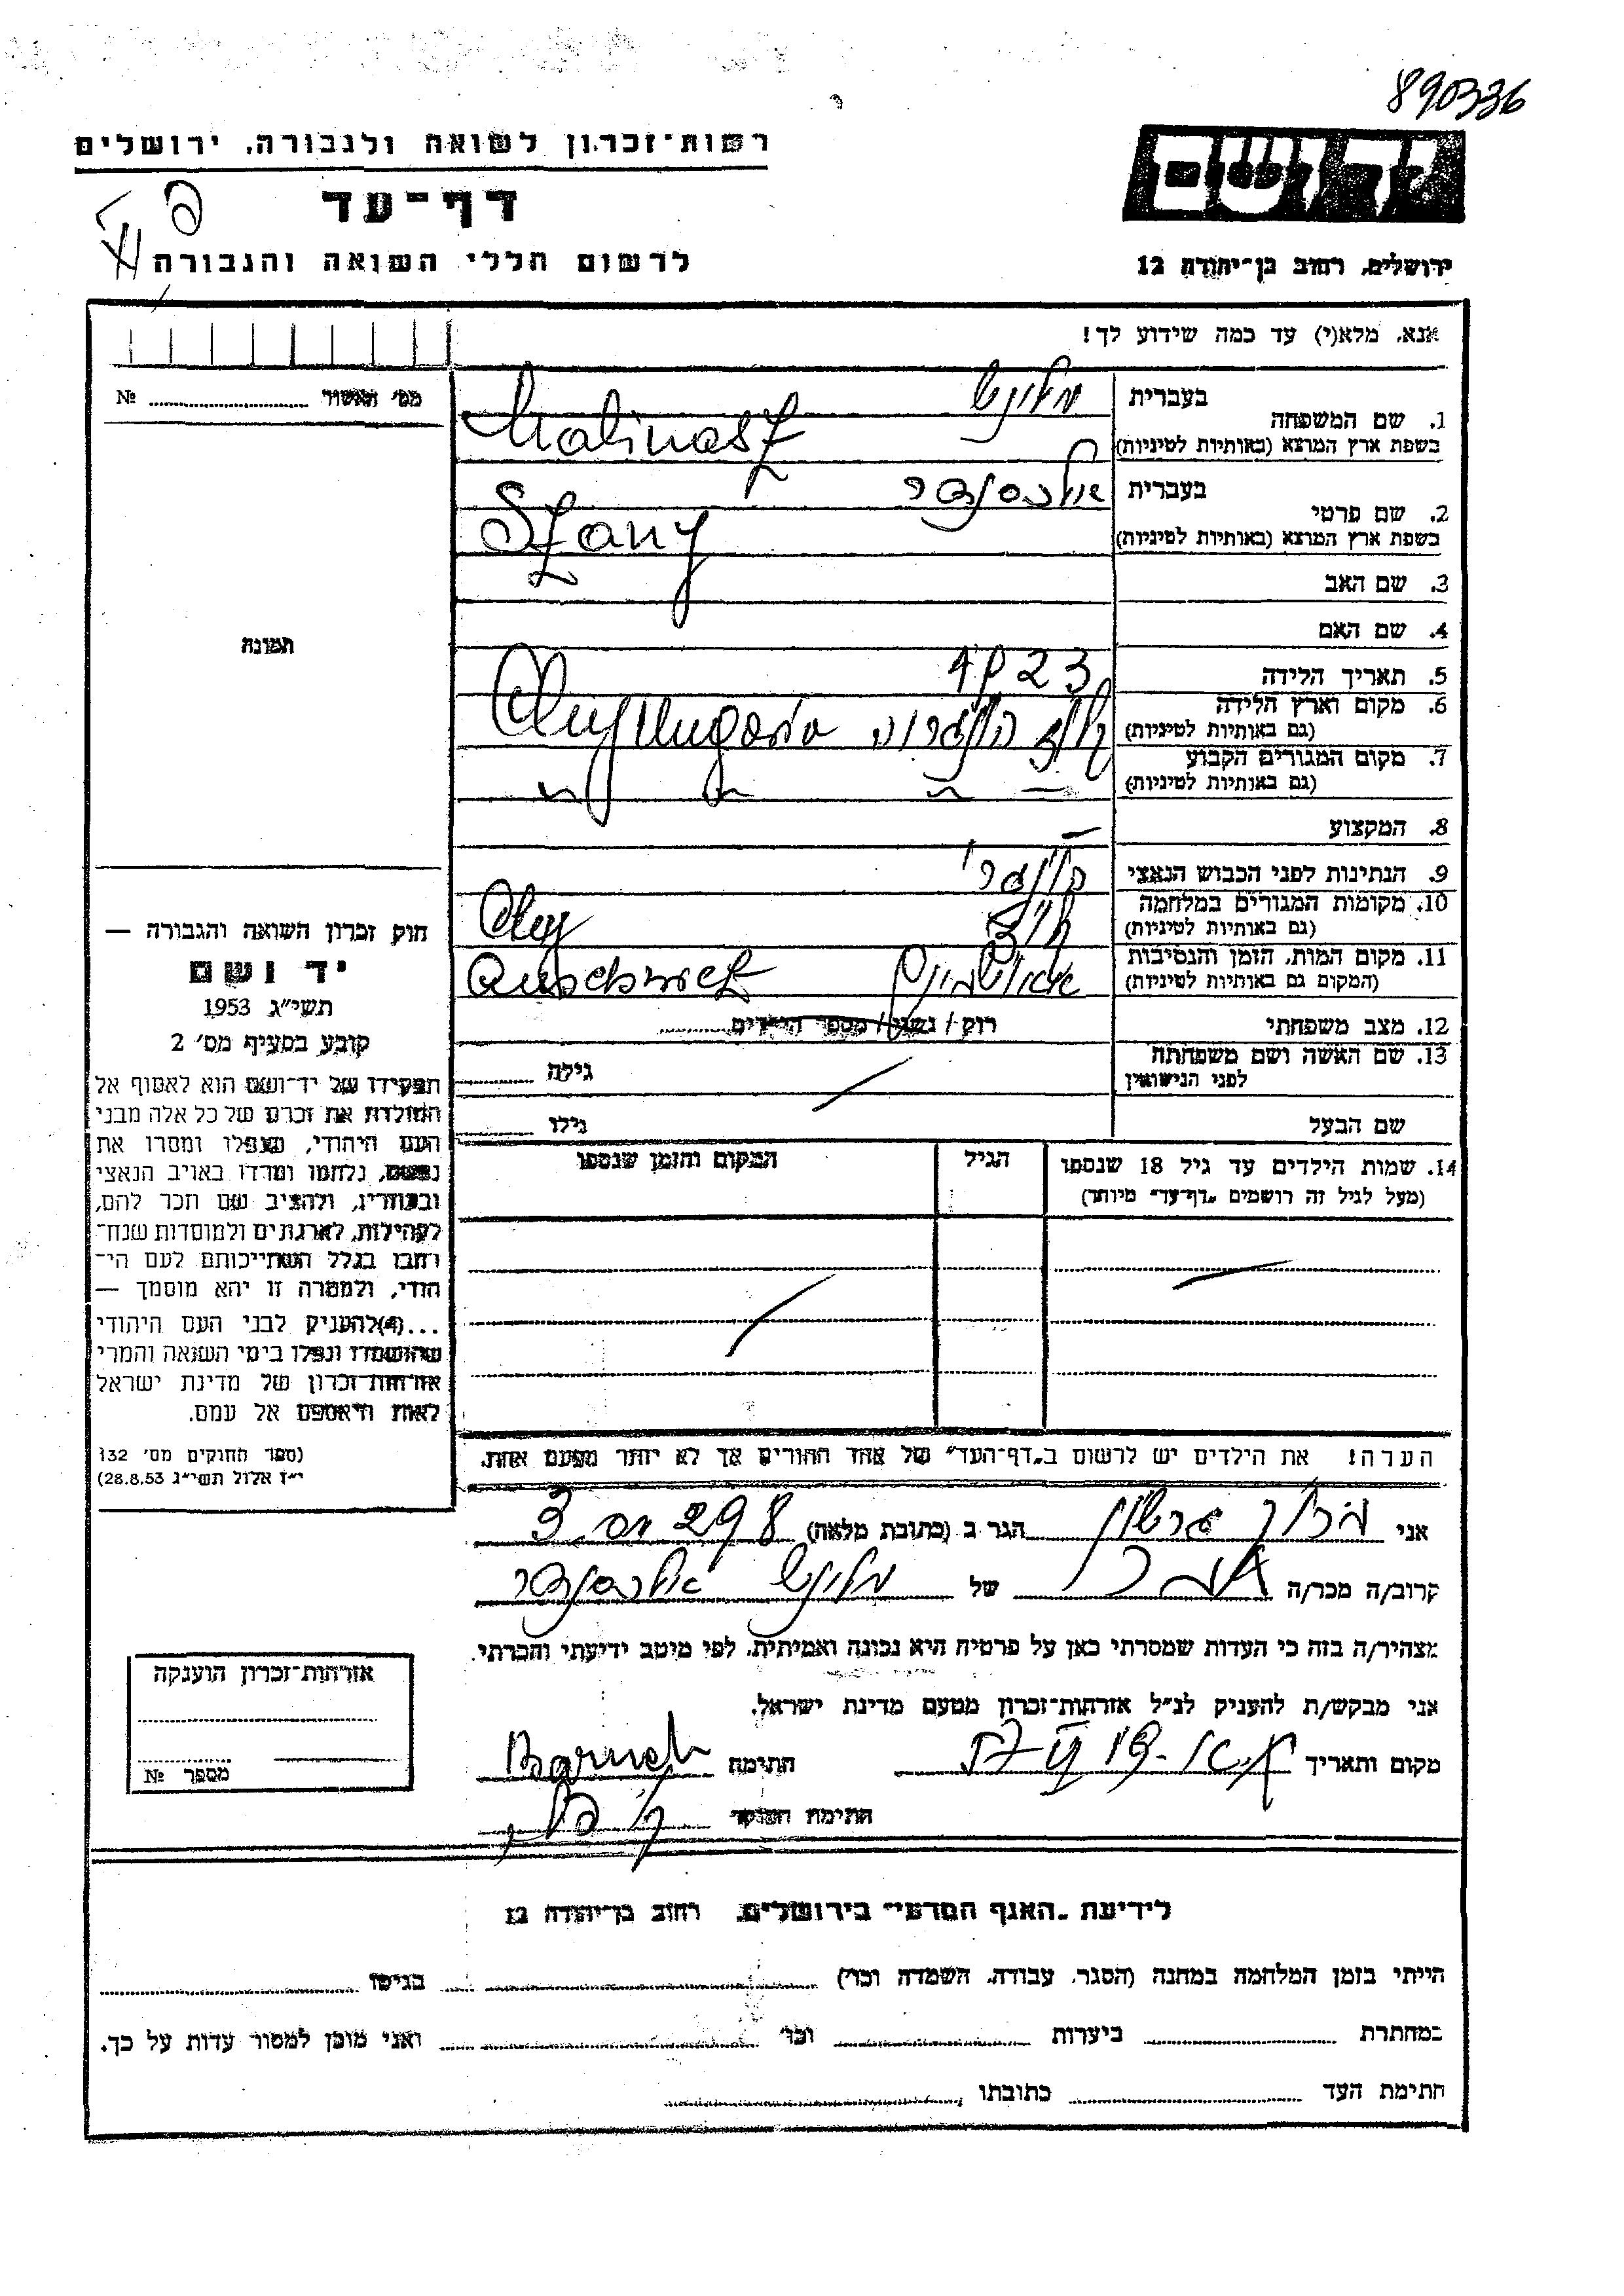 890336
רשות-זכרון לשואה ולגבורה, ירושלים
דף-עד
לרשום חללי השואה והגבורה
יד ושם
ירושלים, רחוב בן-יהודה 12
אנא, מלא(י) עד כמה שידוע לך!
מס' האשור № 
1. שם המשפחה
בעברית
בשפת ארץ המוצא (באותיות לטיניות)
Malinasz
2. שם פרטי
בעברית אלכסנדר
בשפת ארץ המוצא (באותיות לטיניות)
Szany
3. שם האב
4. שם האם
5. תאריך הלידה 1923
6. מקום וארץ הלידה
(גם באותיות לטיניות)
קלוז' הונגריה
7. מקום המגורים הקבוע
(גם באותיות לטיניות)
8. המקצוע —
9. הנתינות לפני הכבוש הנאצי הונגרי
10. מקומות המגורים במלחמה
(גם באותיות לטיניות)
קלוז' Cluj
11. מקום המות, הזמן והנסיבות
(המקום גם באותיות לטיניות)
12. מצב משפחתי רווק / נשוי / מספר הילדים
13. שם האשה ושם משפחתה
לפני הנישואין
גילה
שם הבעל גילו
14. שמות הילדים עד גיל 18 שנספו
(מעל לגיל זה רושמים "דף-עד" מיוחד)
הגיל
המקום והזמן שנספו
הערה! את הילדים יש לרשום ב"דף-העד" של אחד ההורים אך לא יותר מפעם אחת.
תמונה
חוק זכרון השואה והגבורה —
יד ושם
תשי"ג 1953
קובע בסעיף מס' 2
תפקידו של יד-ושם הוא לאסוף אל
המולדת את זכרם של כל אלה מבני
העם היהודי, שנפלו ומסרו את
נפשם, נלחמו ומרדו באויב הנאצי
ובעוזריו, ולהציב שם וזכר להם,
לקהילות, לארגונים ולמוסדות שנח-
רבו בגלל השתייכותם לעם הי-
הודי, ולמטרה זו יהא מוסמך —
...(4) להעניק לבני העם היהודי
שהושמדו ונפלו בימי השואה והמרי
אזרחות-זכרון של מדינת ישראל
לאות היאספם אל עמם.
(ספר החוקים מס' 132
י"ז אלול תשי"ג 28.8.53)
אני ברוך גרשון הגר ב (כתובת מלאה)
קרוב/ה מכר/ה של אלכסנדר
מצהיר/ה בזה כי העדות שמסרתי כאן על פרטיה היא נכונה ואמיתית, לפי מיטב ידיעתי והכרתי.
אני מבקש/ת להעניק לנ"ל אזרחות-זכרון מטעם מדינת ישראל.
מקום ותאריך חתימה Baruch
חתימת הפוקד
אזרחות-זכרון הוענקה
מספר №
לידיעת "האגף המדעי" בירושלים, רחוב בן-יהודה 12
הייתי בזמן המלחמה במחנה (הסגר, עבודה, השמדה וכו') בגיטו
במחתרת ביערות וכו' ואני מוכן למסור עדות על כך.
חתימת העד כתובתו